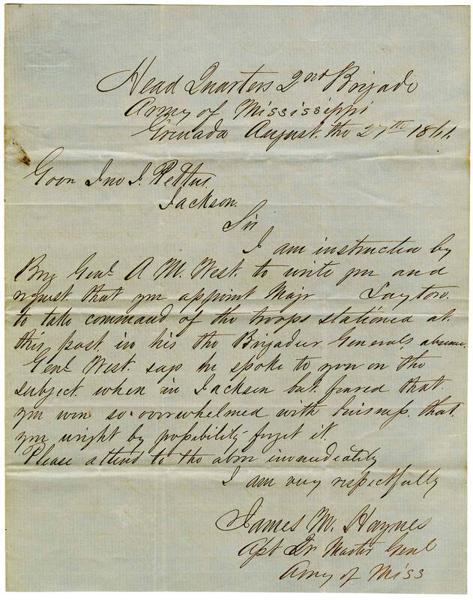 Head Quarters 2nd Brigade
Army of Mississippi
Grenada August the 27th 1861.
Govr Jno J. Pettus
Jackson
Sir
I am instructed by
Brig Genl A M. West to write you and
request that you appoint Majr Layton
to take command of the troops stationed at
this post in his the Brigadier Generals absence.
Genl West says he spoke to you on the
subject when in Jackson but feared that
you were so overwhelmed with buisness that
you might by possibility forget it.
Please attend to the above immediately
I am very respectfully
James M. Haynes
Asst Qr Master Genl
Army of Miss